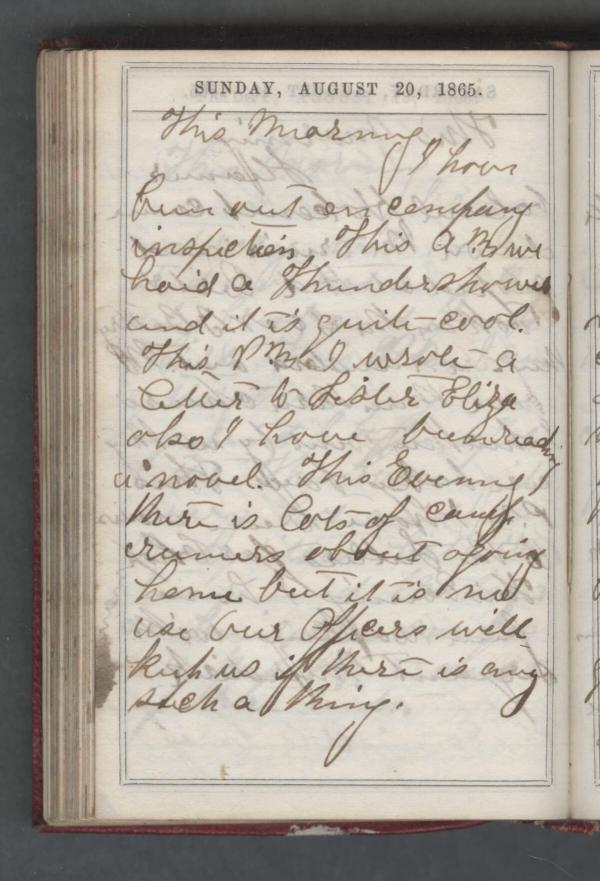 SUNDAY, AUGUST 20, 1865.
This Morning
I have
been out on company
inspection. This A.M. we
haid a Thundershower
and it is quite cool.
This P.M. I wrote a
letter to Sister Eliza
also I have been reading
a novel. This Evening
there is lots of camp
rumers about agoing
home but it is no
use our Officers will
keep us if there is any
such a thing.